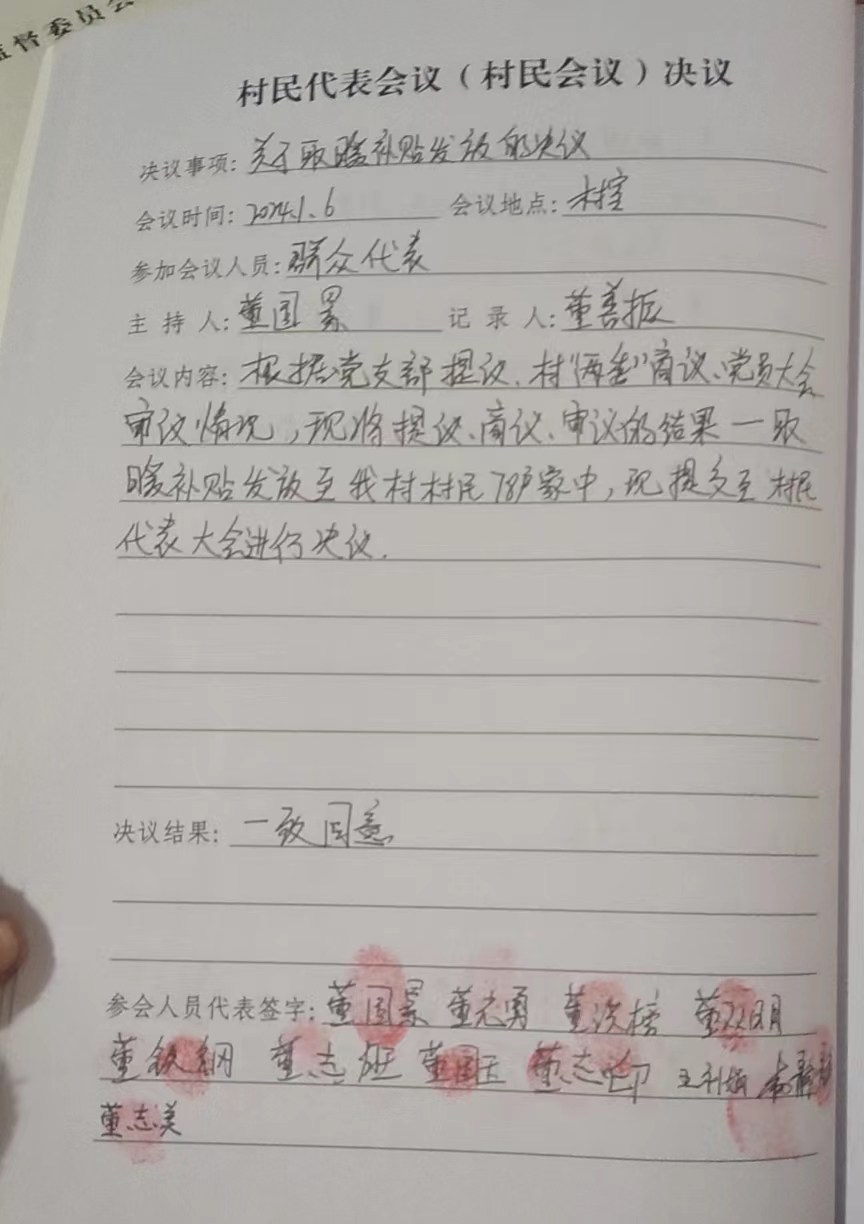 监督委员会
村民代表会议（村民会议）决议
决议事项：关于取暖补贴发放的决议
会议时间：2024.1.6 会议地点：村室
参加会议人员：群众代表
主持人：董国景 记录人：董善振
会议内容：根据党支部提议、村"两委"商议、党员大会
审议情况，现将提议、商议、审议的结果一取
暖补贴发放至我村村民78户家中，现提交至村民
代表大会进行决议.
决议结果：一致同意
参会人员代表签字：董国景 董元勇 董洪榜 董双明
董铁钢 董志 董国 董志 王利娟
董志美